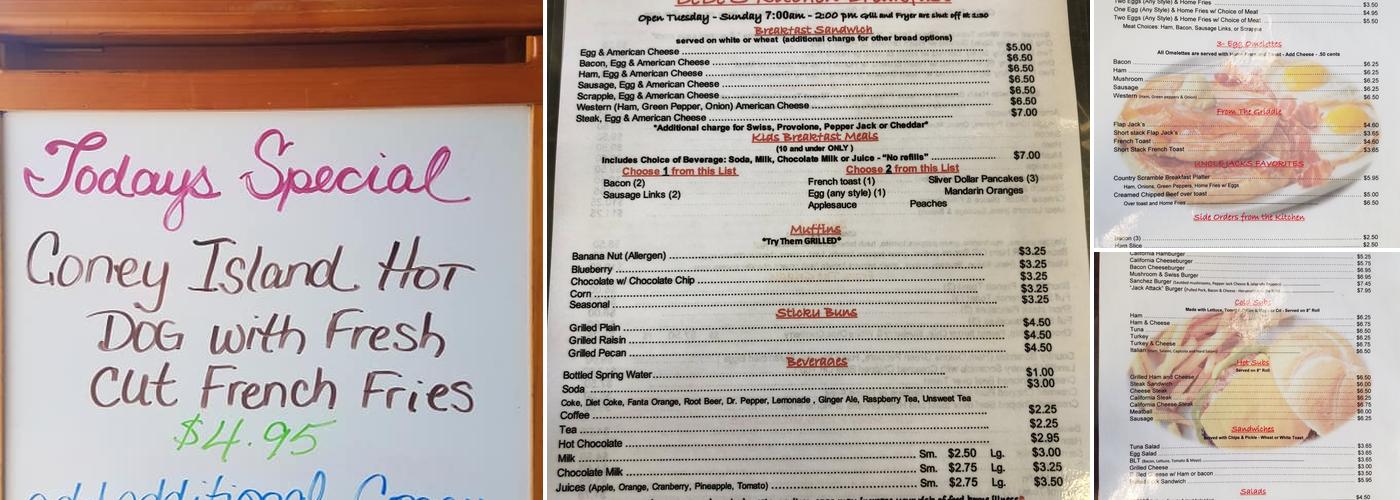 Todays Special
Coney Island Hot
Dog with Fresh
Cut French Fries
$4.95
add additional Coney
Kitchen Breakfast
Open Tuesday - Sunday 7:00am - 2:00 pm Grill and Fryer are shut off at 1:30
Breakfast Sandwich
served on white or wheat (additional charge for other bread options)
Egg & American Cheese $5.00
Bacon, Egg & American Cheese $6.50
Ham, Egg & American Cheese $6.50
Sausage, Egg & American Cheese $6.50
Scrapple, Egg & American Cheese $6.50
Western (Ham, Green Pepper, Onion) American Cheese $6.50
Steak, Egg & American Cheese $7.00
*Additional charge for Swiss, Provolone, Pepper Jack or Cheddar*
Kids Breakfast Meals
(10 and under ONLY )
Includes Choice of Beverage: Soda, Milk, Chocolate Milk or Juice - "No refills" $7.00
Choose 1 from this List Choose 2 from this List
Bacon (2) French toast (1) Silver Dollar Pancakes (3)
Sausage Links (2) Egg (any style) (1) Mandarin Oranges
Applesauce Peaches
Muffins
*Try Them GRILLED*
Banana Nut (Allergen) $3.25
Blueberry $3.25
Chocolate w/ Chocolate Chip $3.25
Corn $3.25
Seasonal $3.25
Sticky Buns
Grilled Plain $4.50
Grilled Raisin $4.50
Grilled Pecan $4.50
Beverages
Bottled Spring Water $1.00
Soda $3.00
Coke, Diet Coke, Fanta Orange, Root Beer, Dr. Pepper, Lemonade , Ginger Ale, Raspberry Tea, Unsweet Tea
Coffee $2.25
Tea $2.25
Hot Chocolate $2.95
Milk Sm. $2.50 Lg. $3.00
Chocolate Milk Sm. $2.75 Lg. $3.25
Juices (Apple, Orange, Cranberry, Pineapple, Tomato) Sm. $2.75 Lg. $3.50
Two Eggs (Any Style) & Home Fries $3.50
One Egg (Any Style) & Home Fries w/ Choice of Meat $4.95
Two Eggs (Any Style) & Home Fries w/ Choice of Meat $5.50
Meat Choices: Ham, Bacon, Sausage Links, or Scrapple
3- Egg Omelettes
All Omelettes are served with Home Fries and Toast - Add Cheese - .50 cents
Bacon $6.25
Ham $6.25
Mushroom $6.25
Sausage $6.25
Western (Ham, Green peppers & Onion) $6.50
From The Griddle
Flap Jack's $4.60
Short stack Flap Jack's $3.65
French Toast $4.60
Short Stack French Toast $3.65
UNCLE JACKS FAVORITES
Country Scramble Breakfast Platter $5.95
Ham, Onions, Green Peppers, Home Fries w/ Eggs
Creamed Chipped Beef over toast $5.00
Over toast and Home Fries $6.50
Side Orders from the Kitchen
Bacon (3) $2.50
Ham Slice $2.50
California Hamburger $5.25
California Cheeseburger $5.75
Bacon Cheeseburger $5.95
Mushroom & Swiss Burger $6.95
Sanchez Burger $7.45
"Jack Attack" Burger $7.95
Cold Subs
Ham $6.25
Ham & Cheese $6.75
Tuna $6.50
Turkey $6.25
Turkey & Cheese $6.75
Italian $6.50
Hot Subs
Served on 8" Roll
Grilled Ham and Cheese $6.50
Steak Sandwich $6.00
Cheese Steak $6.50
California Steak $6.25
California Cheese Steak $6.75
Meatball $6.00
Sausage $6.25
Sandwiches
Served with Chips & Pickle - Wheat or White Toast
Tuna Salad $3.65
Egg Salad $3.65
BLT (Bacon, Lettuce, Tomato & Mayo) $3.65
Grilled Cheese $3.00
Grilled Cheese w/ Ham or bacon $3.50
Pulled Pork Sandwich $5.95
Salads